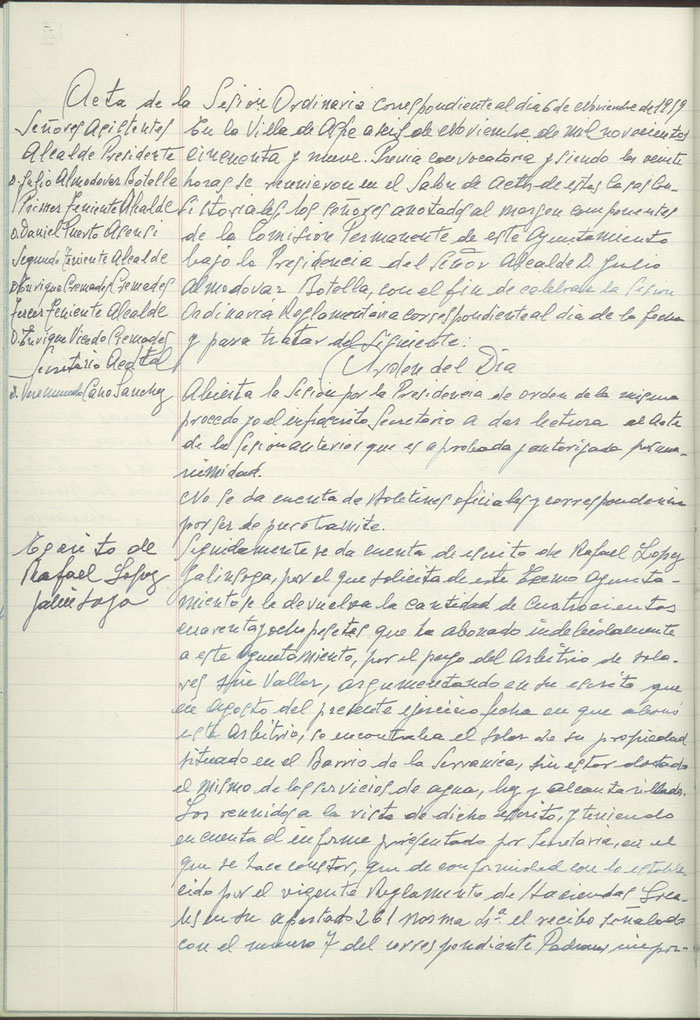 Acta de la Sesion Ordinaria correspondiente al dia 6 de Noviembre de 1959
Señores Asistentes
Alcalde Presidente
D. Julio Almodovar Botella
Primer Teniente Alcalde
D. Daniel Puerto Asensi
Segundo Teniente Alcalde
D. Enrique Cremades Cremades
Tercer Teniente Alcalde
D. Enrique Vicedo Cremades
Secretario Acctal
D. Veremundo Cano Sanchez
En la Villa de Aspe a seis de Noviembre de mil novecientos
cincuenta y nueve. Previa convocatoria y siendo las veinte
horas se reunieron en el Salon de Actos de estas Casas Con-
sistoriales, los señores anotados al margen componentes
de la Comision Permanente de este Ayuntamiento
bajo la Presidencia del Señor Alcalde D. Julio
Almodovar Botella, con el fin de celebrar la Sesion
Ordinaria Reglamentaria correspondiente al dia de la fecha
y para tratar del siguiente:
Orden del Dia
Abierta la Sesion por la Presidencia de orden de la misma
procedo yo el infrascrito Secretario a dar lectura al Acta
de la Sesion anterior que es aprobada y autorizada por una-
nimidad.
No se da cuenta de Boletines oficiales y correspondencia
por ser de puro tramite.
Escrito de
Rafael Lopez
Galinsoga
Seguidamente se da cuenta de escrito de Rafael Lopez
Galinsoga, por el que solicita de este Excmo Ayunta-
miento, se le devuelva la cantidad de Cuatrocientas
cuarenta y ocho pesetas que ha abonado indebidamente
a este Ayuntamiento, por el pago del Arbitrio de sola-
res sin Vallar, argumentando en su escrito que
en Agosto del presente ejercicio fecha en que abonó
este Arbitrio, se encontraba el solar de su propiedad
situado en el Barrio de la Serranica, sin estar dotado
el mismo de los servicios de agua, luz y alcantarillado.
Los reunidos a la vista de dicho escrito, y teniendo
en cuenta el informe presentado por Secretaria, en el
que se hace constar, que de conformidad con lo estable-
cido por el vigente Reglamento de Haciendas Loca-
les en su apartado 261 norma 4ª el recibo señalado
con el numero 7 del correspondiente Padron impor-